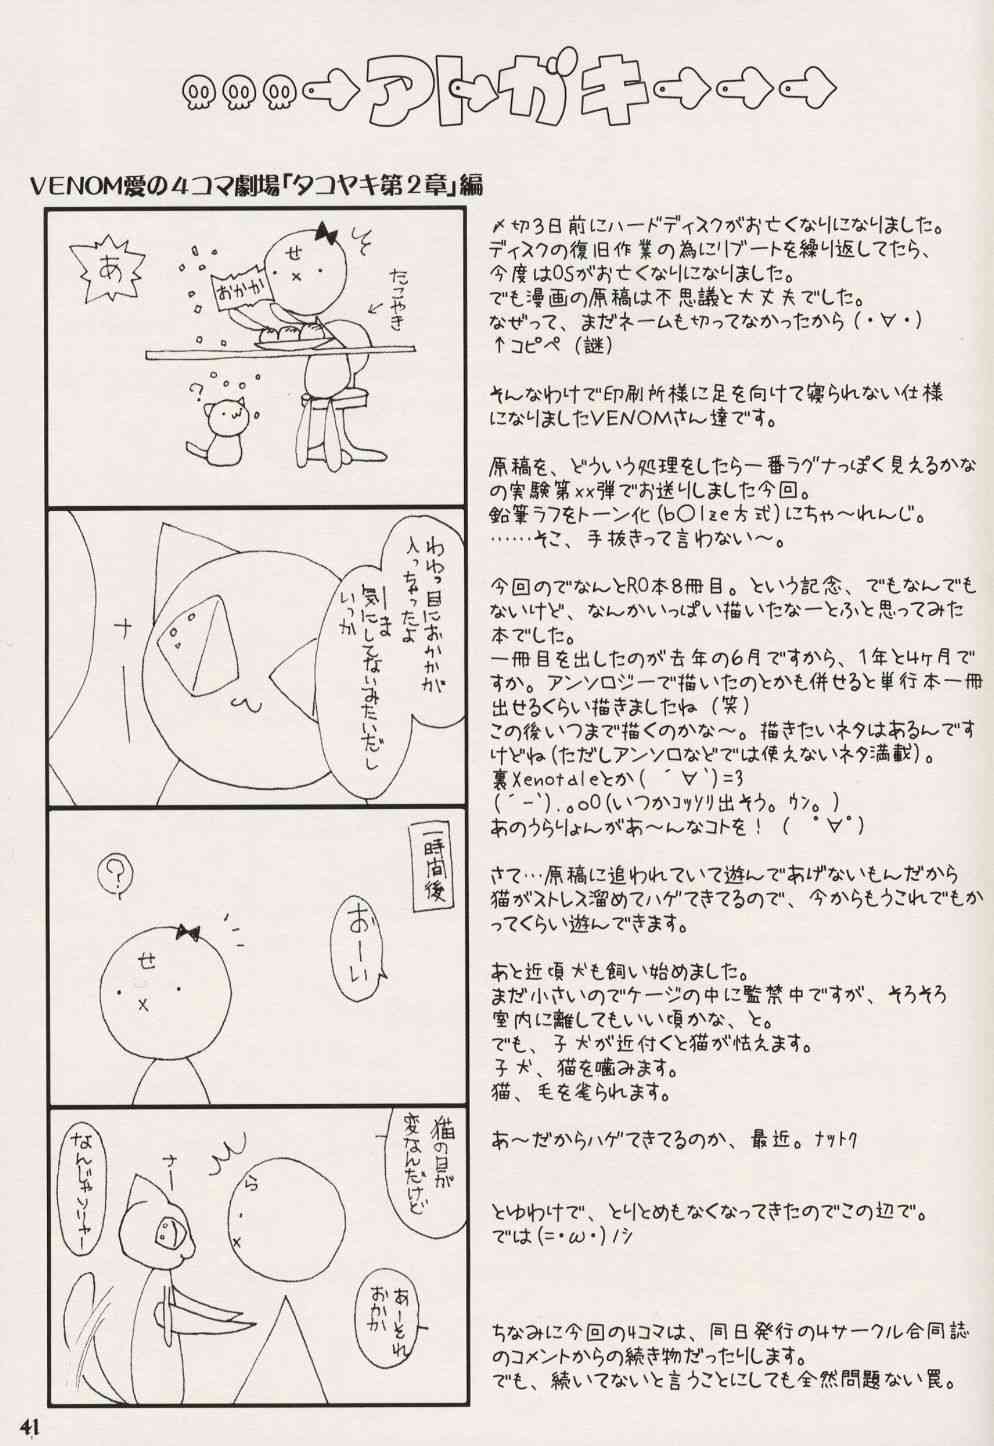 アトガキ
VENOM愛の4コマ劇場「タコヤキ第2章」編
あ
せ
おかか
たこやき
?
わわっ目におかかが
入っちゃったよ
ま
気にしてないみたいだし
いっか
ナー
一時間後
?
おーい
せ
猫の目が
変なんだけど
ら
ナー
なんじゃソリャー
あーそれ
おかか
〆切3日前にハードディスクがお亡くなりになりました。
ディスクの復旧作業の為にリブートを繰り返してたら、
今度はOSがお亡くなりになりました。
でも漫画の原稿は不思議と大丈夫でした。
なぜって、まだネームも切ってなかったから(・∀・)
↑コピペ(謎)
そんなわけで印刷所様に足を向けて寝られない仕様
になりましたVENOMさん達です。
原稿を、どういう処理をしたら一番ラグナっぽく見えるかな
の実験第xx弾でお送りしました今回。
鉛筆ラフをトーン化(b〇lze方式)にちゃ〜れんじ。
……そこ、手抜きって言わない〜。
今回のでなんとRO本8冊目。という記念、でもなんでも
ないけど、なんかいっぱい描いたなーとふと思ってみた
本でした。
一冊目を出したのが去年の6月ですから、1年と4ヶ月で
すか。アンソロジーで描いたのとかも併せると単行本一冊
出せるくらい描きましたね(笑)
この後いつまで描くのかな〜。描きたいネタはあるんです
けどね(ただしアンソロなどでは使えないネタ満載)。
裏Xenotaleとか( ´∀`)=3
(´-`).。oO(いつかｺｯｿﾘ出そう。ｳﾝ。)
あのうらりょんがあ〜んなコトを!( ﾟ∀ﾟ)
さて…原稿に追われていて遊んであげないもんだから
猫がストレス溜めてハゲてきてるので、今からもうこれでもか
ってくらい遊んできます。
あと近頃犬も飼い始めました。
まだ小さいのでケージの中に監禁中ですが、そろそろ
室内に離してもいい頃かな、と。
でも、子犬が近付くと猫が怯えます。
子犬、猫を噛みます。
猫、毛を毟られます。
あ〜だからハゲてきてるのか、最近。ﾅｯﾄｸ
とゆわけで、とりとめもなくなってきたのでこの辺で。
では(=・ω・)ノシ
ちなみに今回の4コマは、同日発行の4サークル合同誌
のコメントからの続き物だったりします。
でも、続いてないと言うことにしても全然問題ない罠。
41